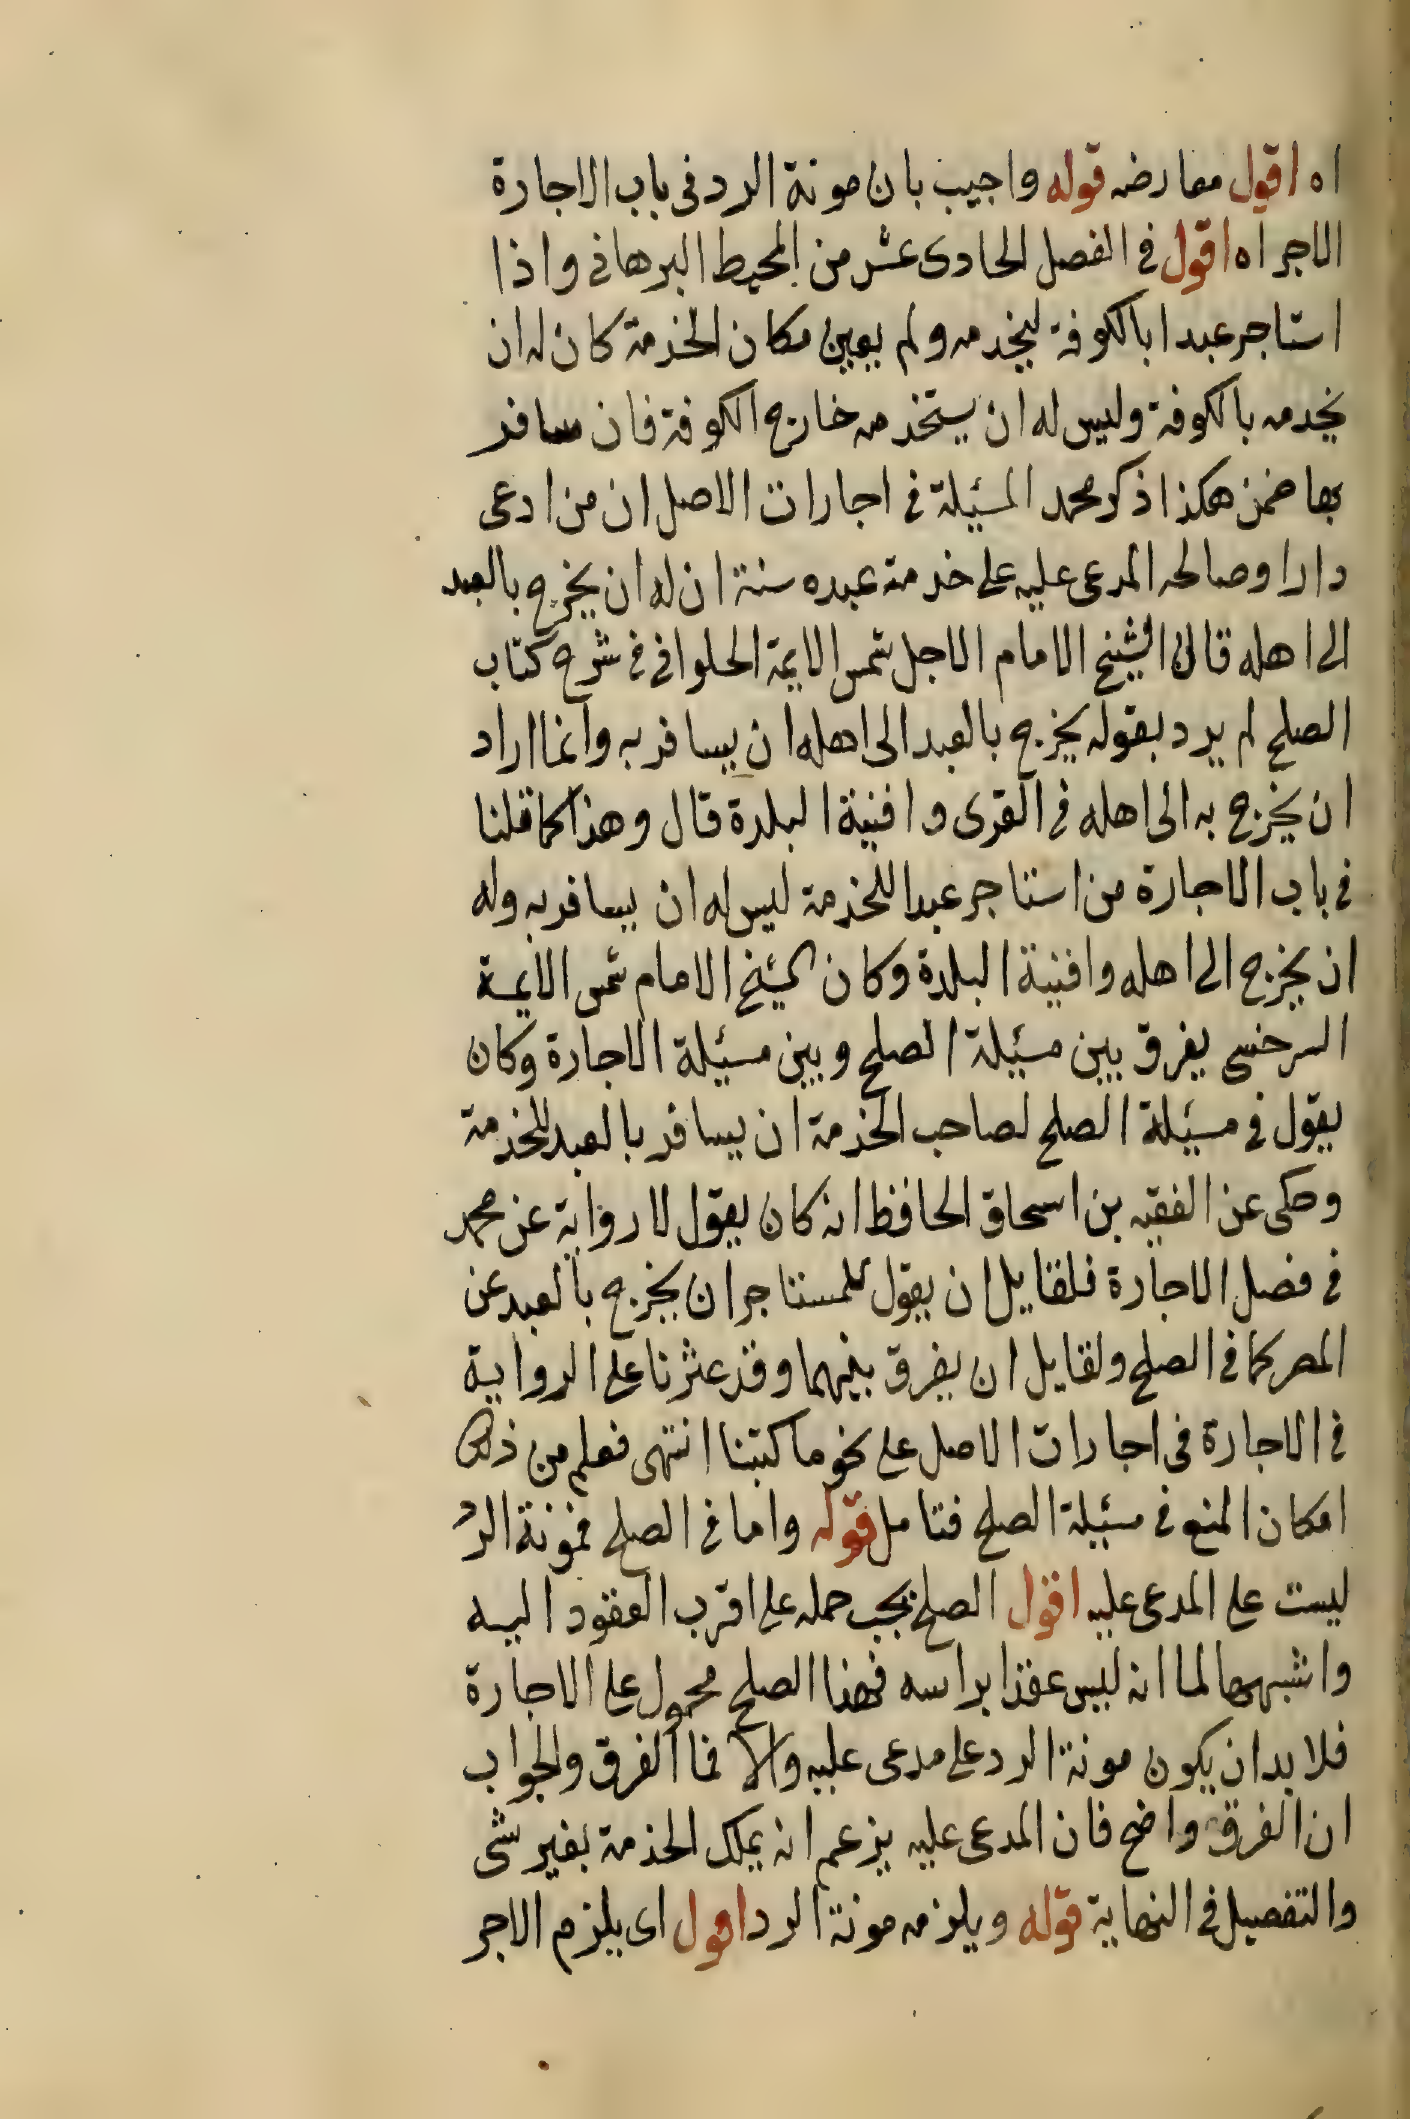 اه اقول معارضه قوله واجيب بان مونة الرد فى باب الاجارة
الاجر اه اقول فى الفصل الحادى عشر من المحيط البرهانى واذا
استاجر عبدا بالكوفة ليخدمه ولم يعين مكان الخدمة كان له ان
يخدمه بالكوفة وليس له ان يستخدمه خارج الكوفة فان سافر
بها ضمن هكذا ذكر محمد المسئلة فى اجارات الاصل ان من ادعى
دارا وصالحه المدعى عليه على خدمة عبده سنة ان له ان يخرج بالعبد
الى اهله قال الشيخ الامام الاجل شمس الايمة الحلوانى فى شرح كتاب
الصلح لم يرد بقوله يخرج بالعبد الى اهله ان يسافر به وانما اراد
ان يخرج به الى اهله فى القرى وافنية البلدة قال وهذا كما قلنا
فى باب الاجارة من استاجر عبدا للخدمة ليس له ان يسافر به وله
ان يخرج الى اهله وافنية البلدة وكان الشيخ الامام شمس الايمة
السرخسى يفرق بين مسئلة الصلح وبين مسئلة الاجارة وكان
يقول فى مسئلة الصلح لصاحب الخدمة ان يسافر بالعبد للخدمة
وحكى عن الفقيه بن اسحاق الحافظ انه كان يقول لا رواية عن محمد
فى فصل الاجارة فلقايل ان يقول للمستاجر ان يخرج بالعبد عن
المصر كما فى الصلح ولقايل ان يفرق بينهما وقد عثرنا على الرواية
فى الاجارة فى اجارات الاصل على نحو ما كتبنا انتهى فعلم من ذلك
امكان المنع فى مسئلة الصلح فتامل قوله واما فى الصلح فمونة الرد
ليست على المدعى عليه اقول الصلح يجب حمله على اقرب العقود اليه
واشبهها لما انه ليس عقدا براسه فهذا الصلح محمول على الاجارة
فلا بد ان يكون مونة الرد على مدعى عليه والا فما الفرق والجواب
ان الفرق واضح فان المدعى عليه يزعم انه يملك الخدمة بغير شى
والتفصيل فى النهاية قوله ويلزمه مونة الرد اقول اى يلزم الاجر